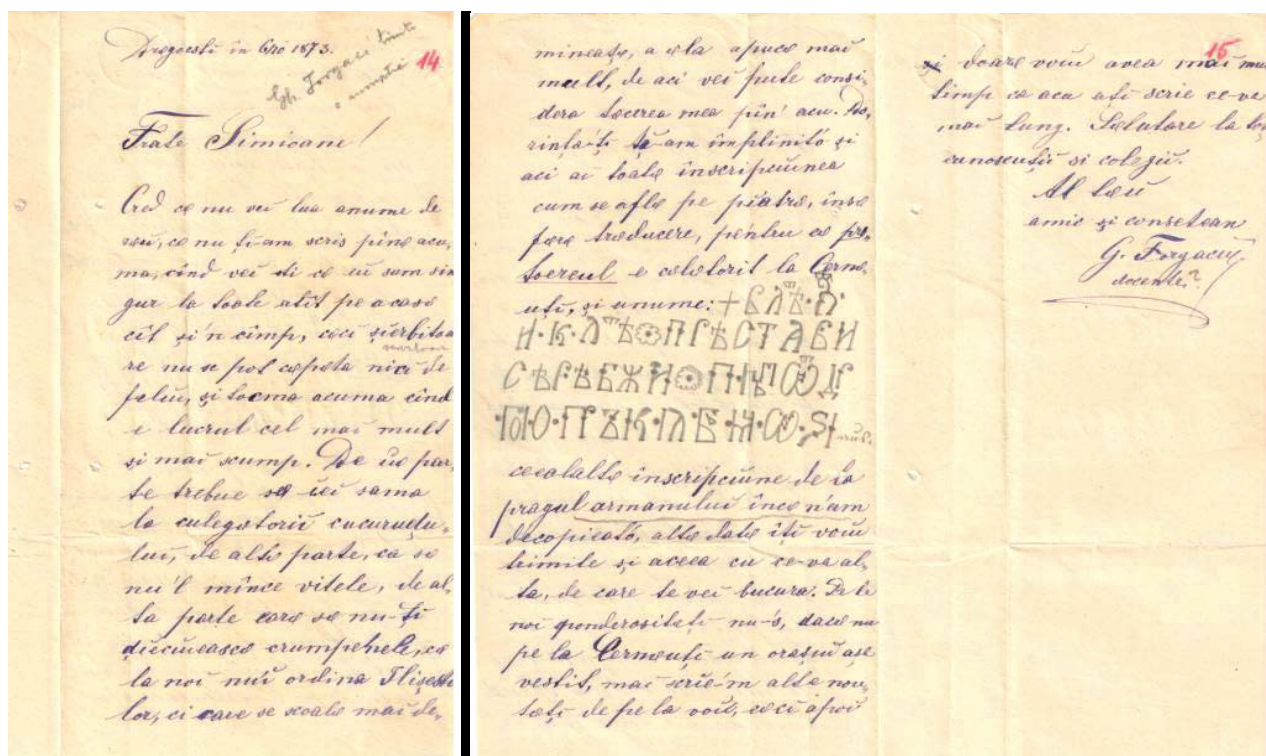 în 6ro 1873.
14
Gh. Forgaci
Frate Simioane!
Cred că nu vei lua anume de
reu, că nu ți-am scris pînă acu,
ma, cînd vei sti ca eu sam sin
gur la toate atît pe acasă
cît și'n cîmp, căci
re nu se pot căpăta nici de
feliu, și tocma acuma cînd
e lucrul cel mai mult
și mai scump. De uă par,
te trebue să iei sama
la culegătorii cucuruțu,
lui, de altă parte, ca să
nu'l mînce vitele, de al,
ta parte cară să nu-ți
crumpenele, că
la noi nui ordina
lor, ci care se scoală mai de,
mineață, a ăla apucă mai
mult, de aci vei pute consi,
dera tăcerea mea pîn' acu. Do,
rința-ți ți-am împlinită și
aci ai toată inscripciunea
cum se află pe piatră, însă
fără traducere, pentru că
e călătorit la Cernă,
uți, și anume:
ceealaltă inscripciune de la
pragul armanului încă n'am
decopieată, altă dată îți voiu
trimite și aceea cu ce-va al,
ta, de care te vei bucura. De la
noi nu-s, dacă nu
pe la Cernăuți un orașiu așe
vestit, mai scrie'm alte nou,
tăți de pe la voi, căci apoi
15
și doară voiu avea mai mu
timp ca acu ați scrie ce-va
mai lung. Sălutare la
cunoscuții si colegii.
Al tău
amic și consetean
G. Forgaciu
docente?